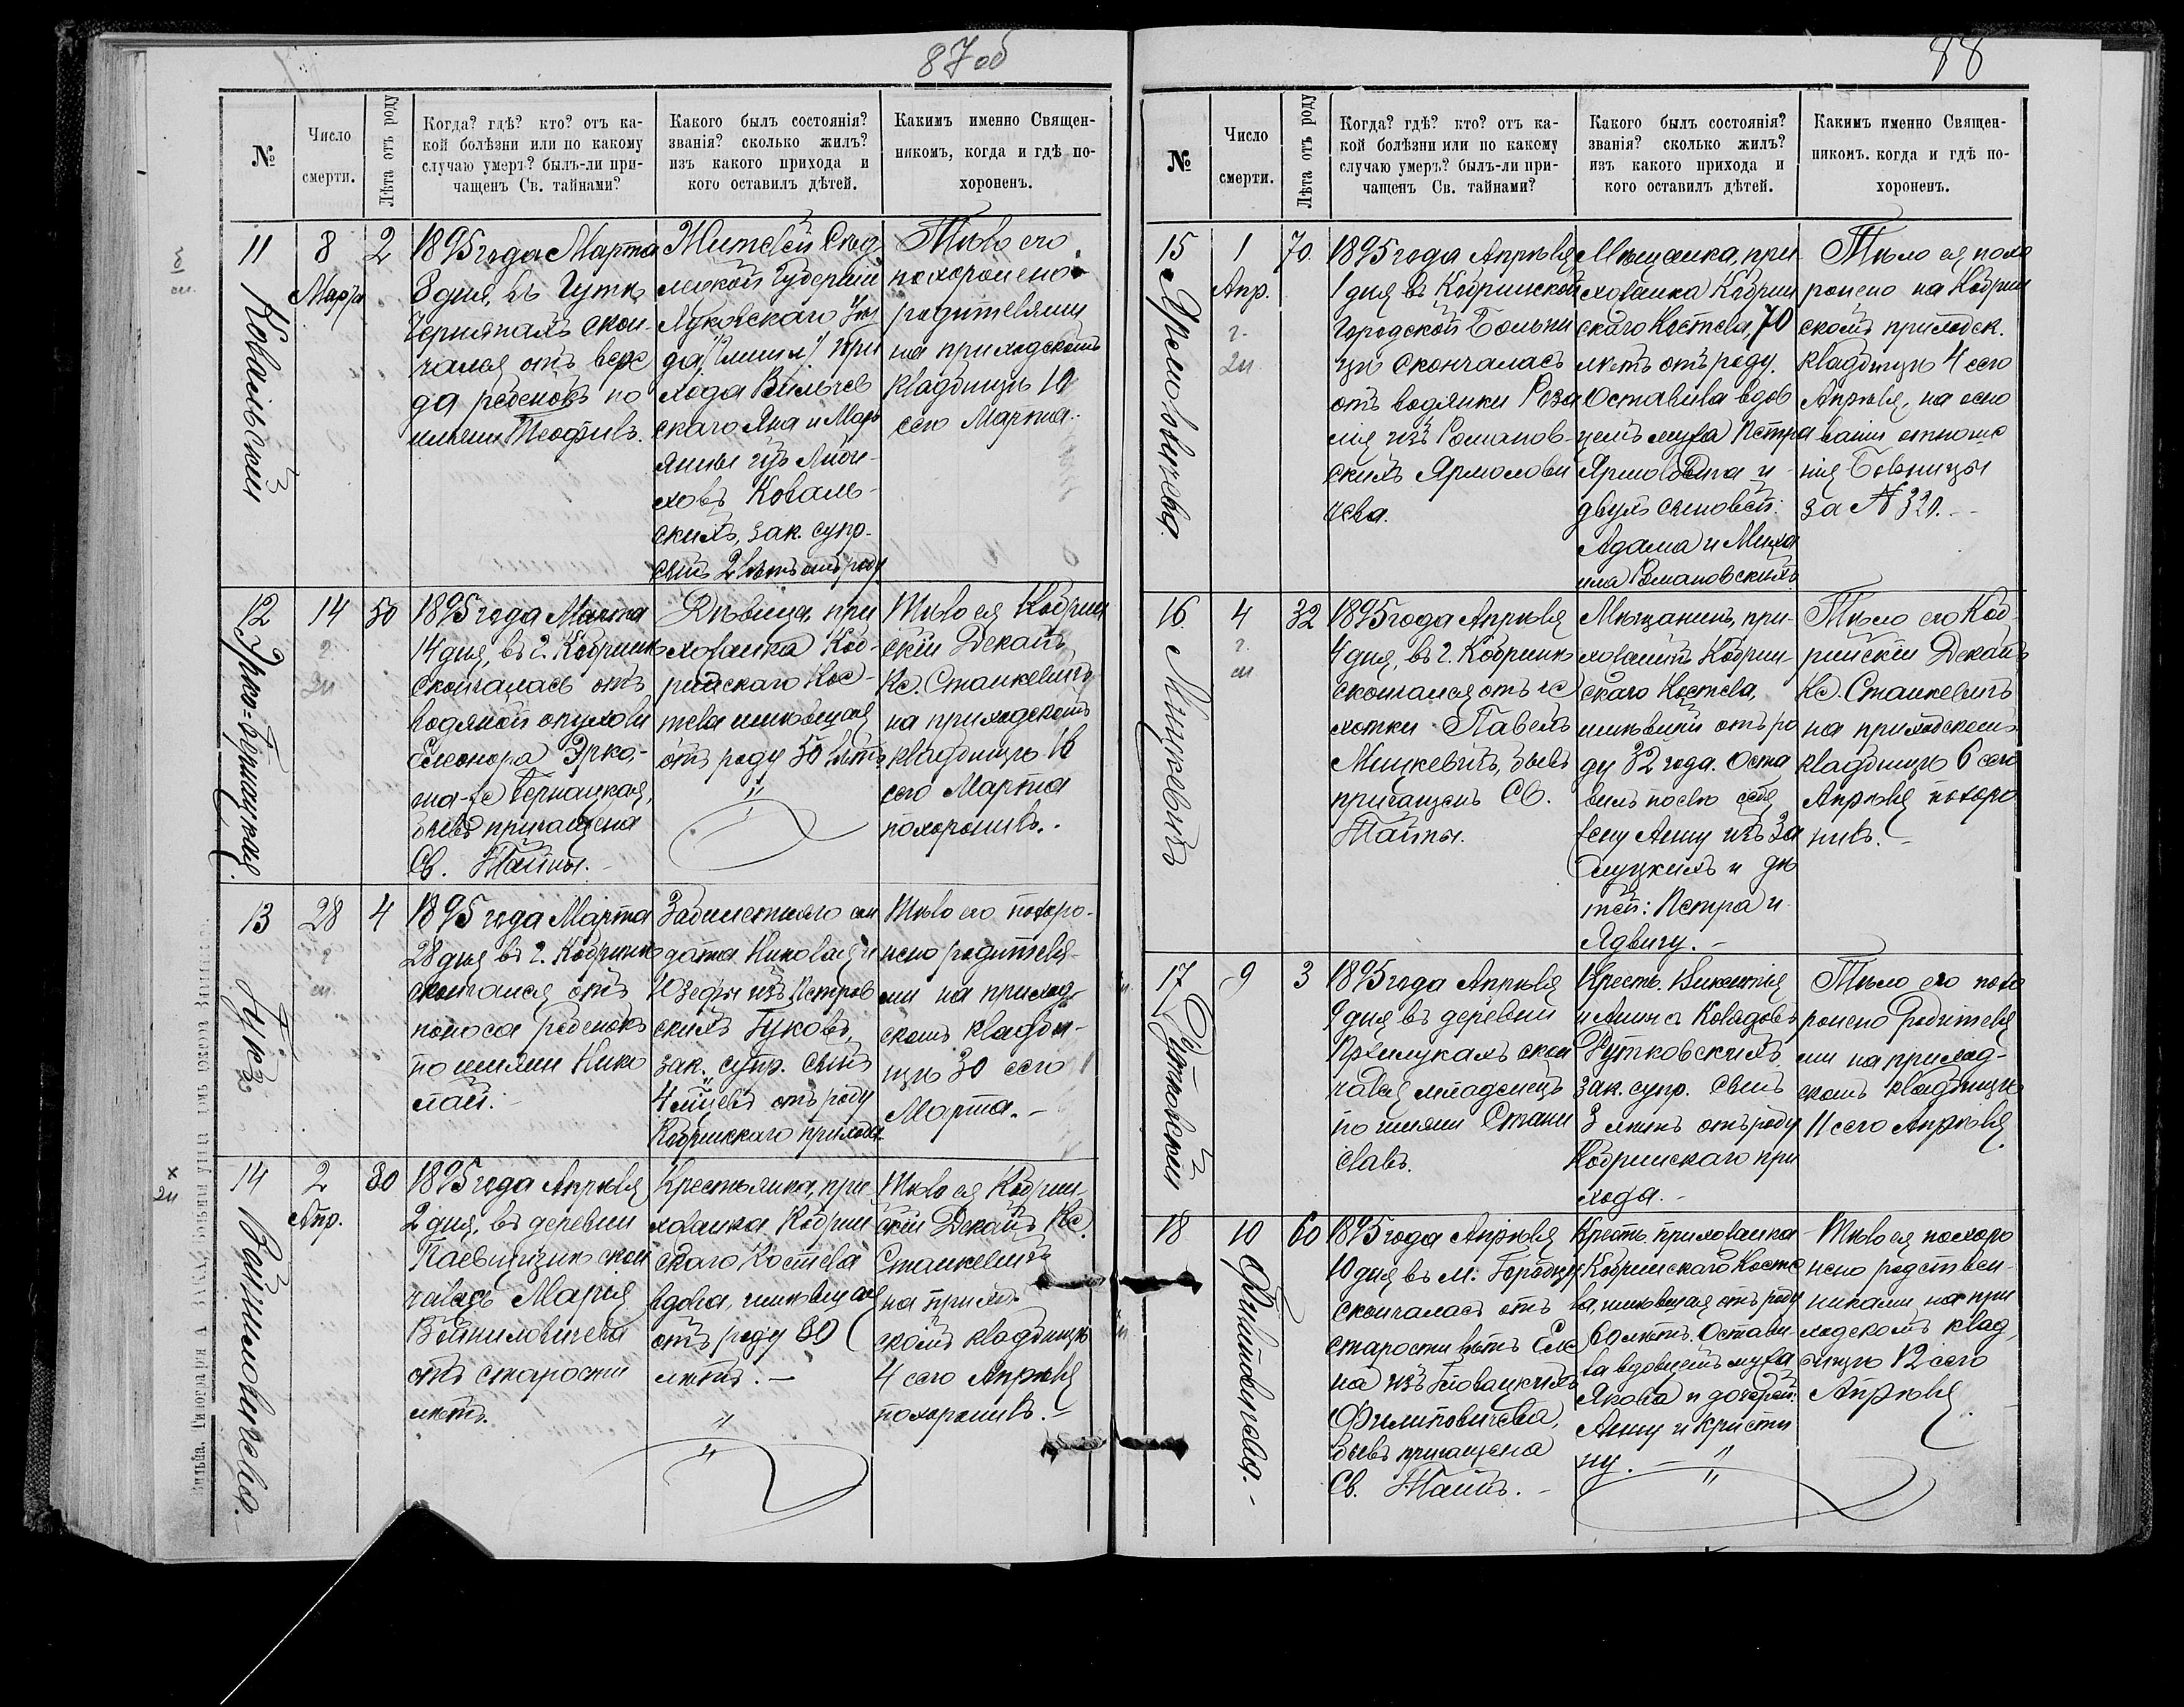 87 об
№
Число
смерти.
Лѣта отъ роду
Когда? гдѣ? кто? отъ ка-
кой болѣзни или по какому
случаю умеръ? былъ-ли при-
чащенъ Св. тайнами?
Какого былъ состоянія?
званія? сколько жилъ?
изъ какого прихода и
кого оставилъ дѣтей.
Какимъ именно Священ-
никомъ, когда и гдѣ по-
хороненъ.
11
Ковальскій
8
Марта
2
1895 года Марта
8 дня, въ
скон-
чался отъ
ребенокъ по
имени Теофилъ.
Жителей Сѣд
лецкой Губерніи
Луковскаго Уѣз
да, при
хода
скаго Яна и Марь
янны изъ
ховъ Коваль-
скихъ, зак. супр.
сынъ 2 лѣтъ отъ роду
Тѣло его
похоронено
родителями
на приходскомъ
кладбищѣ 10
сего Марта.
12
14
50
1895 года Марта
14 дня, въ г. Кобринѣ
скончалась отъ
водяной опухоли
Элеонора Эрко-
Бернацкая,
бывъ причащена
Св. Тайнъ.
Дѣвица, при
хожанка Коб-
ринскаго Кос-
тела имѣвшая
отъ роду 50 лѣтъ
Тѣло ея Кобрин
скій Деканъ
Кс. Станкевичъ
на приходскомъ
кладбищѣ 16
сего Марта
похоронилъ.
13
Гукъ
28
4
1895 года Марта
28 дня въ г. Кобринѣ
скончался отъ
поноса ребенокъ
по имени Нико
лай.
сол
дата Николая и
Юзефы изъ Петров
скихъ Гуковъ,
зак. супр. сынъ
4 отъ роду
Кобринскаго прихода
Тѣло его похоро-
нено родителя-
ми на приход-
скомъ кладби-
щѣ 30 сего
Марта.
14
Войниловичева.
2
Апр.
80
1895 года Апрѣля
2 дня, въ деревни
скон
чалась Марія
Войниловичева
отъ старости
лѣтъ.
Крестьянка, при
хожанка Кобрин
скаго Костела
вдова, имѣвшая
отъ роду 80
лѣтъ.
Тѣло ея Кобрин-
скій Деканъ Кс.
Станкевичъ
на приход-
скомъ кладбищѣ
4 сего Апрѣля
похоронилъ.
88
№
Число
смерти.
Лѣта отъ роду
Когда? гдѣ? кто? отъ ка-
кой болѣзни или по какому
случаю умеръ? былъ-ли при-
чащенъ Св. тайнами?
Какого былъ состоянія?
званія? сколько жилъ?
изъ какого прихода и
кого оставилъ дѣтей.
Какимъ именно Священ-
никомъ. когда и гдѣ по-
хороненъ.
15
Ярмоловичева.
1
Апр.
70
1895 года Апрѣля
1 дня въ Кобринской
Городской Больни
цѣ скончалась
отъ водянки Роза
лія изъ Романов-
скихъ Ярмолови
чева.
Мѣщанка, при
хожанка Кобрин
скаго Костела, 70
лѣтъ отъ роду.
Оставила вдов
цемъ мужа Петра
и
двухъ сыновей:
Адама и Миха
ила Романовскихъ
Тѣло ея похо
ронено на Кобрин
скомъ приходск.
кладбищѣ 4 сего
Апрѣля, на осно
ваніи отноше
нія Больницы
за № 320.
16
Мицкевичъ
4
32
1895 года Апрѣля
4 дня, въ г. Кобринѣ
скончался отъ ча
хотки Павелъ
Мицкевичъ, бывъ
причащенъ Св.
Тайнъ.
Мѣщанинъ, при-
хожанинъ Кобрин-
скаго Костела,
имѣвшій отъ ро
ду 32 года. Оста
вилъ послѣ себя
жену Анну изъ За
луцкихъ и дѣ
тей: Петра и
Ядвигу.
Тѣло его Коб-
ринскій Деканъ
Кс. Станкевичъ
на приходскомъ
кладбищѣ 6 сего
Апрѣля похоро
нилъ.
17
9
3
1895 года Апрѣля
9 дня въ деревни
скон
чался младенецъ
по имени Стани
славъ.
Крест. Викентія
и Анны
зак. супр. сынъ
3 отъ роду
Кобринскаго при
хода.
Тѣло его похо
ронено Родителя
ми на приход-
скомъ кладбищѣ
11 сего Апрѣля
18
Филиповичева.
10
60
1895 года Апрѣля
10 дня въ м.
скончалась отъ
старости лѣтъ Еле
на изъ Гловацкихъ
Филиповичева,
бывъ причащена
Св. Тайнъ.
Крест. прихожанка
Кобринскаго Косте
ла, имѣвшая отъ роду
60 лѣтъ. Остави-
ла вдовцемъ мужа
Якова и дочерей:
Анну и Кристи
ну.
Тѣло ея похоро
нено родствен-
никами на при
ходскомъ клад
бищѣ 12 сего
Апрѣля